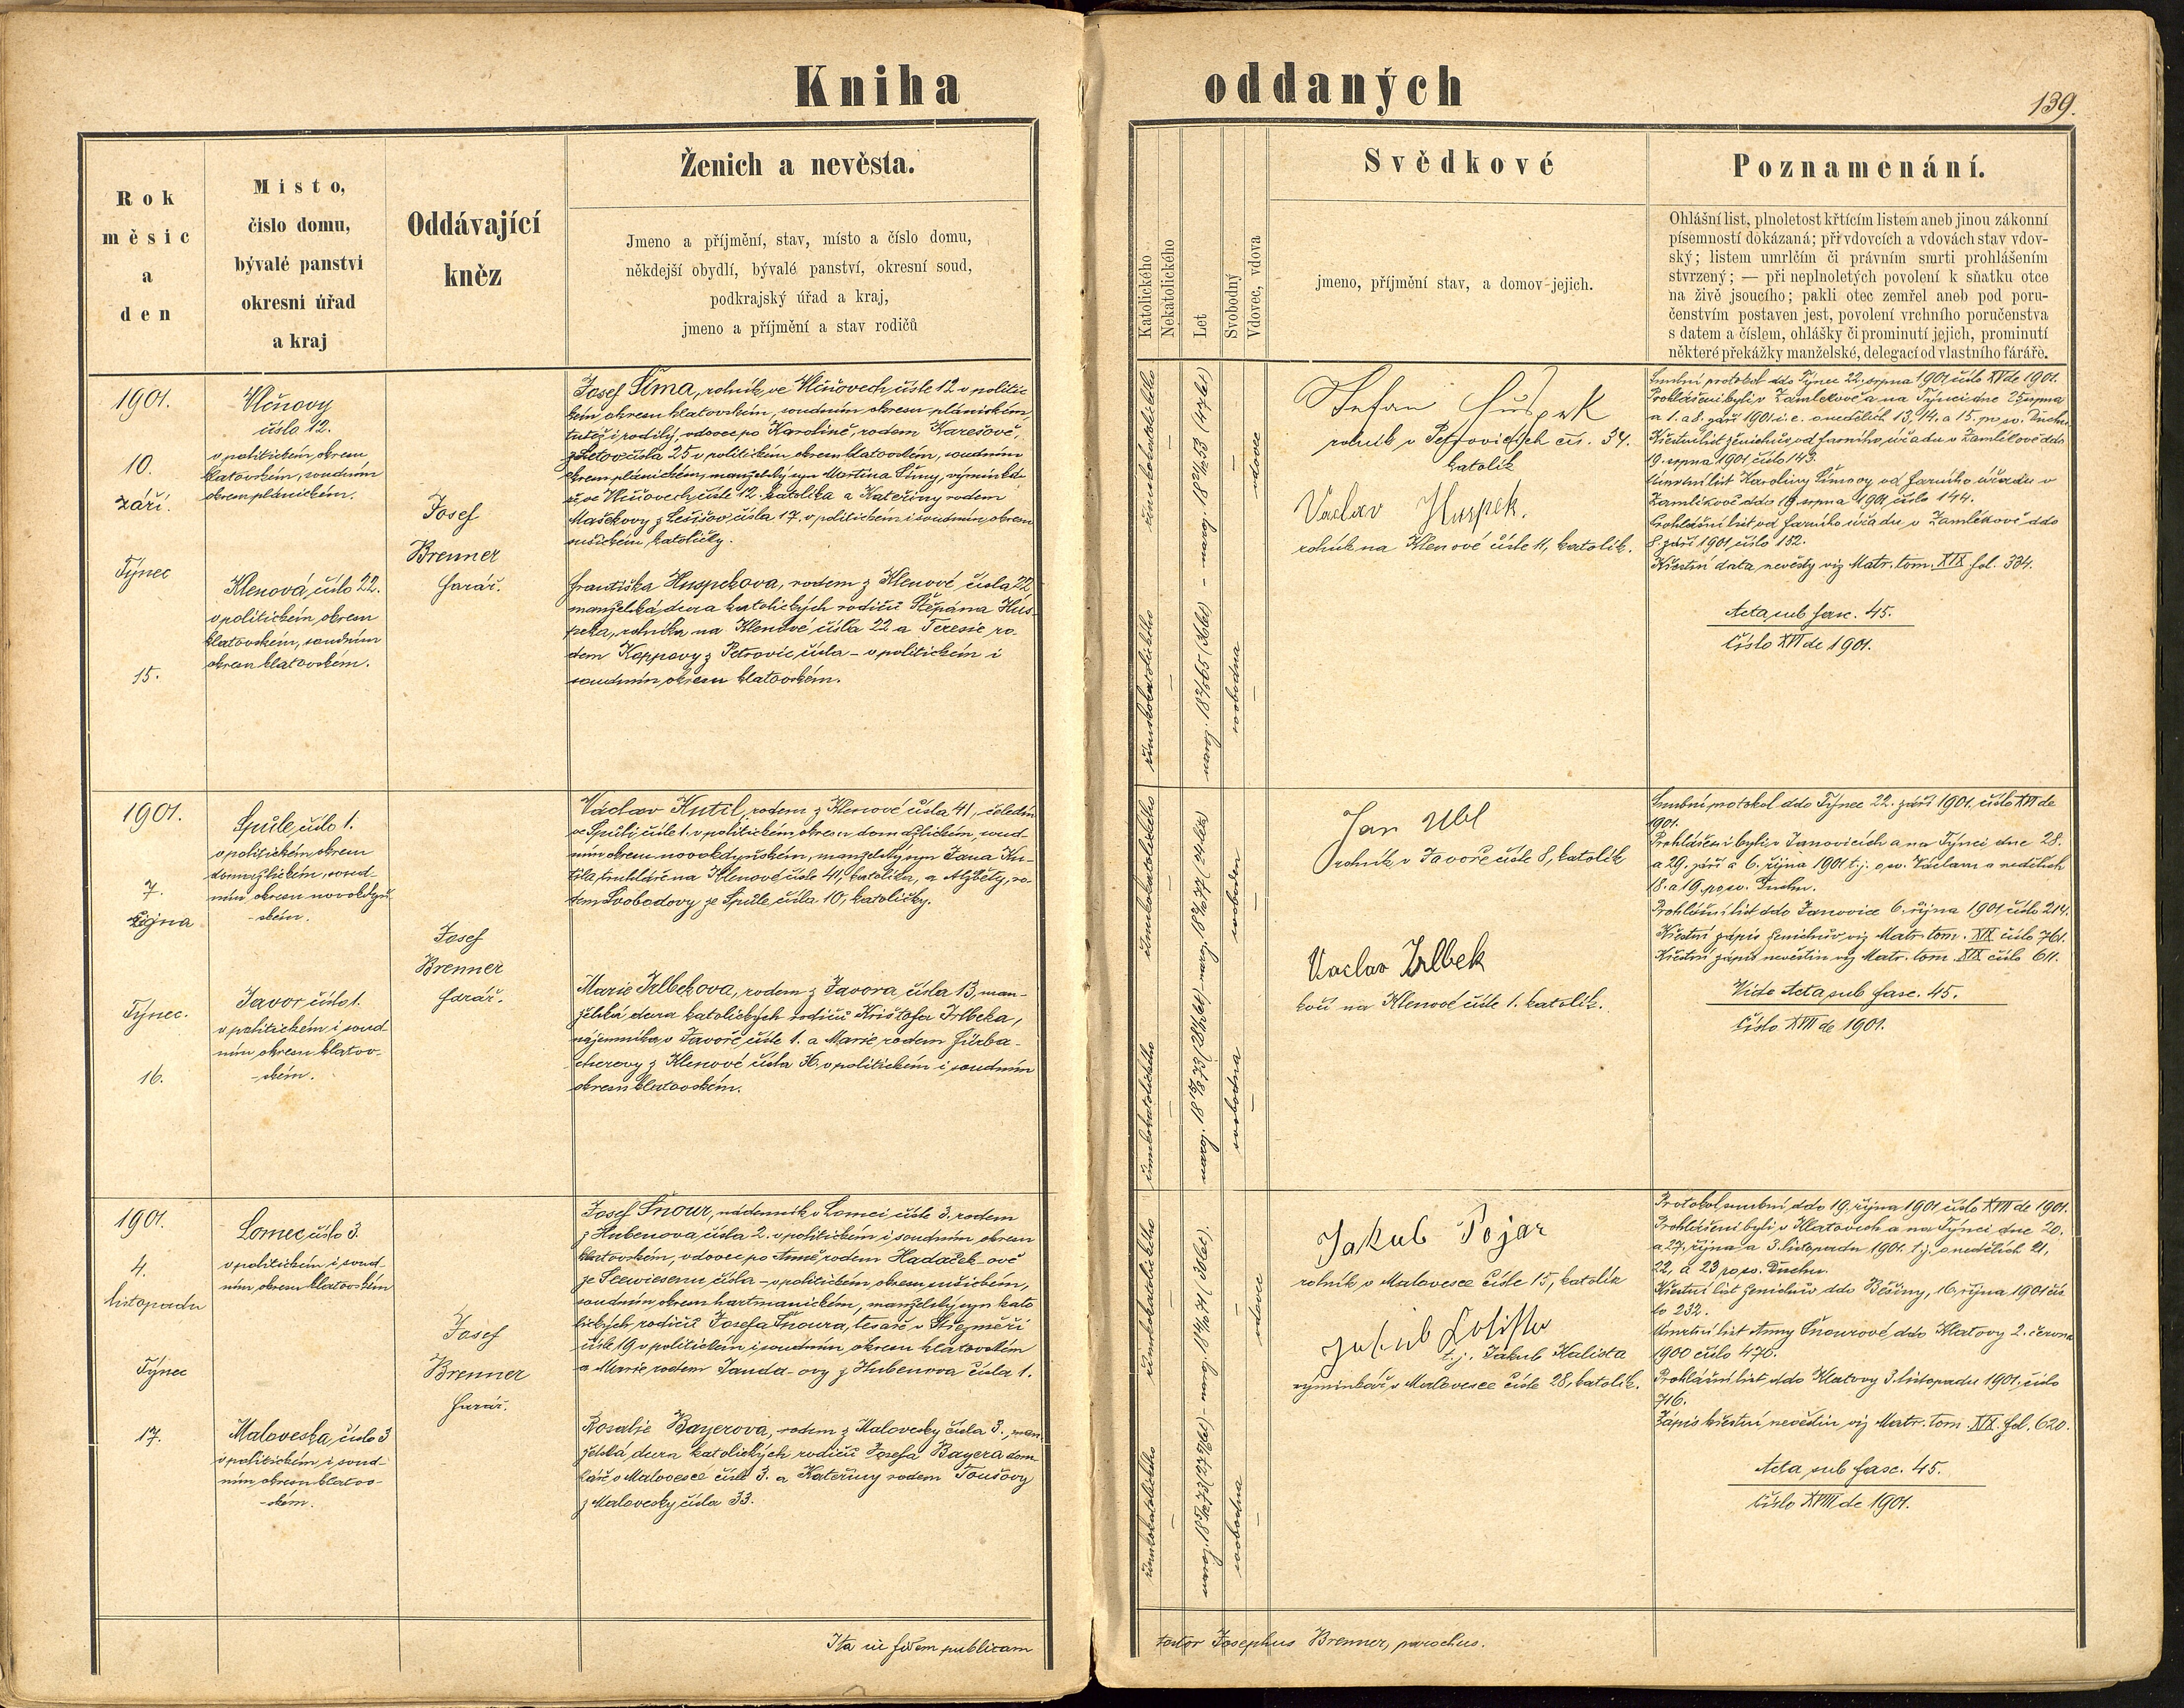 Kniha oddaných
139.
Rok
měsíc
a
den
Místo,
číslo domu,
bývalé panství
okresní úřad
a kraj
Oddávající
kněz
Ženich a nevěsta.
Jmeno a příjmění, stav, místo a číslo domu,
někdejší obydlí, bývalé panství, okresní soud,
podkrajský úřad a kraj,
jmeno a příjmění a stav rodičů
Katolického
Nekatolického
Let
Svobodný
Vdovec, vdova
Svědkové
jmeno, příjmění stav, a domov jejich.
Poznamenání.
Ohlášní list, plnoletost křtícím listem aneb jinou zákonní
písemností dokázaná; při vdovcích a vdovách stav vdov-
ský; listem umrlčím či právním smrti prohlášením
stvrzený; — při neplnoletých povolení k sňatku otce
na živě jsoucího; pakli otec zemřel aneb pod poru-
čenstvím postaven jest, povolení vrchního poručenstva
s datem a číslem, ohlášky či prominutí jejich, prominutí
některé překážky manželské, delegací od vlastního faráře.
1901.
10.
září.
Týnec
15.
Vlčňovy
číslo 12.
v politickém okresu
klatovském, soudním
okresu plánickém.
Klenová, číslo 22.
v politickém okresu
klatovském, soudním
okresu klatovském.
Josef
Brenner
farář.
Josef Šíma, rolník, ve Vlčňovech čísle 12 v politic-
kém okresu klatovském, soudním okresu plánickém,
tutéž i rodilý, vdovec po Karolině, rodem Karešově,
z Letov čísla 25 v politickém okresu klatovském, soudním
okresu plánickém, manželský syn Martina Šímy, výminká-
ře ve Vlčňovech čísle 12 katolíka a Kateřiny rodem
Maškovy z Lešišov čísla 17 v politickém i soudním okresu
sušickém, katoličky.
Františka Huspekova, rodem z Klenové čísla 22
manželská dcera katolických rodičů Štěpána Hus-
peka, rolníka na Klenové čísla 22 a Teresie ro-
dem Koppovy z Petrovic čísla – v politickém i
soudním okresu klatovském.
římskokatolického
–
svobodna
vdovec
Stefan Huspek
rolník v Petrovicích čís. 34.
katolík
Václav Huspek.
rolník na Klenové čísle 11, katolík.
Snubní protokol ddo Týnec 22. srpna 1901 číslo XV de 1901.
Prohlášeni byli v Zamlekově a na Týnci dne 25 srpna
a 1. a 8. září 1901 i. e. o nedělích 13, 14. a 15. po sv. Duchu.
Křestní list ženichův od farního úřadu v Zamlekově ddo
19. srpna 1901 číslo 143.
Úmrtní list Karoliny Šímovy od farního úřadu v
Zamlekově ddo 19 srpna 1901, číslo 144.
Prohlášní list od farního úřadu v Zamlekově ddo
8. září 1901, číslo 152.
Křestní data nevěsty viz Matr. tom. XIX fol. 334.
Acta sub fasc. 45.
Číslo XVI de 1901.
1901.
7.
října
Týnec.
16.
Spůle, číslo 1.
v politickém okresu
domažlickém, soud-
ním okresu novokdyň-
ském.
Javor číslo 1.
v politickém i soud-
ním okresu klatov-
ském.
Josef
Brenner
farář.
Václav Kutil, rodem z Klenové čísla 41, čeledín
ve Spůli čísle 1. v politickém okresu domažlickém, soud-
ním okresu novokdyňském, manželský syn Jana Ku-
tila, truhláře na Klenové čísle 41, katolíka, a Alžběty, ro-
dem Svobodovy ze Spůle čísla 10, katoličky.
Marie Irlbekova, rodem z Javora čísla 13, man-
želská dcera katolických rodičů Krištofa Irlbeka,
nájemníka v Javoře čísle 1. a Marie rodem Fürba-
cherovy z Klenové čísla 36. v politickém i soudním
okresu klatovském.
římskokatolického
svoboden
svobodna
Jan Ubl
rolník v Javoře čísle 8, katolík
Vaclav Irlbek
kočí na Klenové čísle 1. katolík.
Snubní protokol ddo Týnec 22. září 1901, číslo XVI de
1901.
Prohlášeni byli v Janovicích a na Týnci dne 28.
a 29. září a 6. října 1901 t. j. o sv. Václavu a nedělích
18. a 19. po sv. Duchu.
Prohlášní list ddo Janovice 6. října 1901, číslo 214.
Křestní zápis ženichův viz Matr. tom. XIX číslo 761.
Křestní zápis nevěstin viz Matr. tom. XIX číslo 611.
Vide Acta sub fasc. 45.
Číslo XVII de 1901.
1901.
4.
listopadu
Týnec
17.
Lomec číslo 3.
v politickém i soud-
ním okresu klatovském
Maloveska, číslo 3
v politickém i soud-
ním okresu klatov-
ském.
Josef
Brenner
farář.
Josef Šnour, nádenník v Lomci čísle 3. rodem
z Hubenova čísla 2. v politickém i soudním okresu
klatovském, vdovec po Anně rodem Hadaček-ově
ze Seewiesenu čísla – v politickém okresu sušickém,
soudním okresu hartmanickém, manželský syn kato-
lických rodičů Josefa Šnoura, tesaře v Střezměři
čísle 19 v politickém i soudním okresu klatovském
a Marie rodem Janda-ovy z Hubenova čísla 1.
Rosalie Bayerova, rodem z Malovesky čísla 3., man-
želská dcera katolických rodičů Josefa Bayera dom-
káře v Malovesce čísle 3. a Kateřiny rodem Toušovy
z Malovesky čísla 33.
římskokatolického
vdovec
svobodna
Jakub Pojar
rolník v Malovesce čísle 15, katolík
Jakub Kalista
t. j. Jakub Kalista
výminkář v Malovesce čísle 28, katolík.
Protokol snubní ddo 19. října 1901 číslo XVIII de 1901.
Prohlášeni byli v Klatovech a na Týnci dne 20.
a 27. října a 3. listopadu 1901. t. j. o nedělích 21,
22, a 23 po sv. Duchu.
Křestní list ženichův ddo Běšiny, 16. října 1901 čís-
lo 232.
Úmrtní list Anny Šnourové, ddo Klatovy 2. června
1900 číslo 470.
Prohlášní list ddo Klatovy 3. listopadu 1901, číslo
716.
Zápis křestní nevěstin viz Matr. tom. XIX. fol. 620.
Acta sub fasc. 45.
Číslo XVIII de 1901.
Ita in fidem publicam
testor Josephus Brenner, parochus.